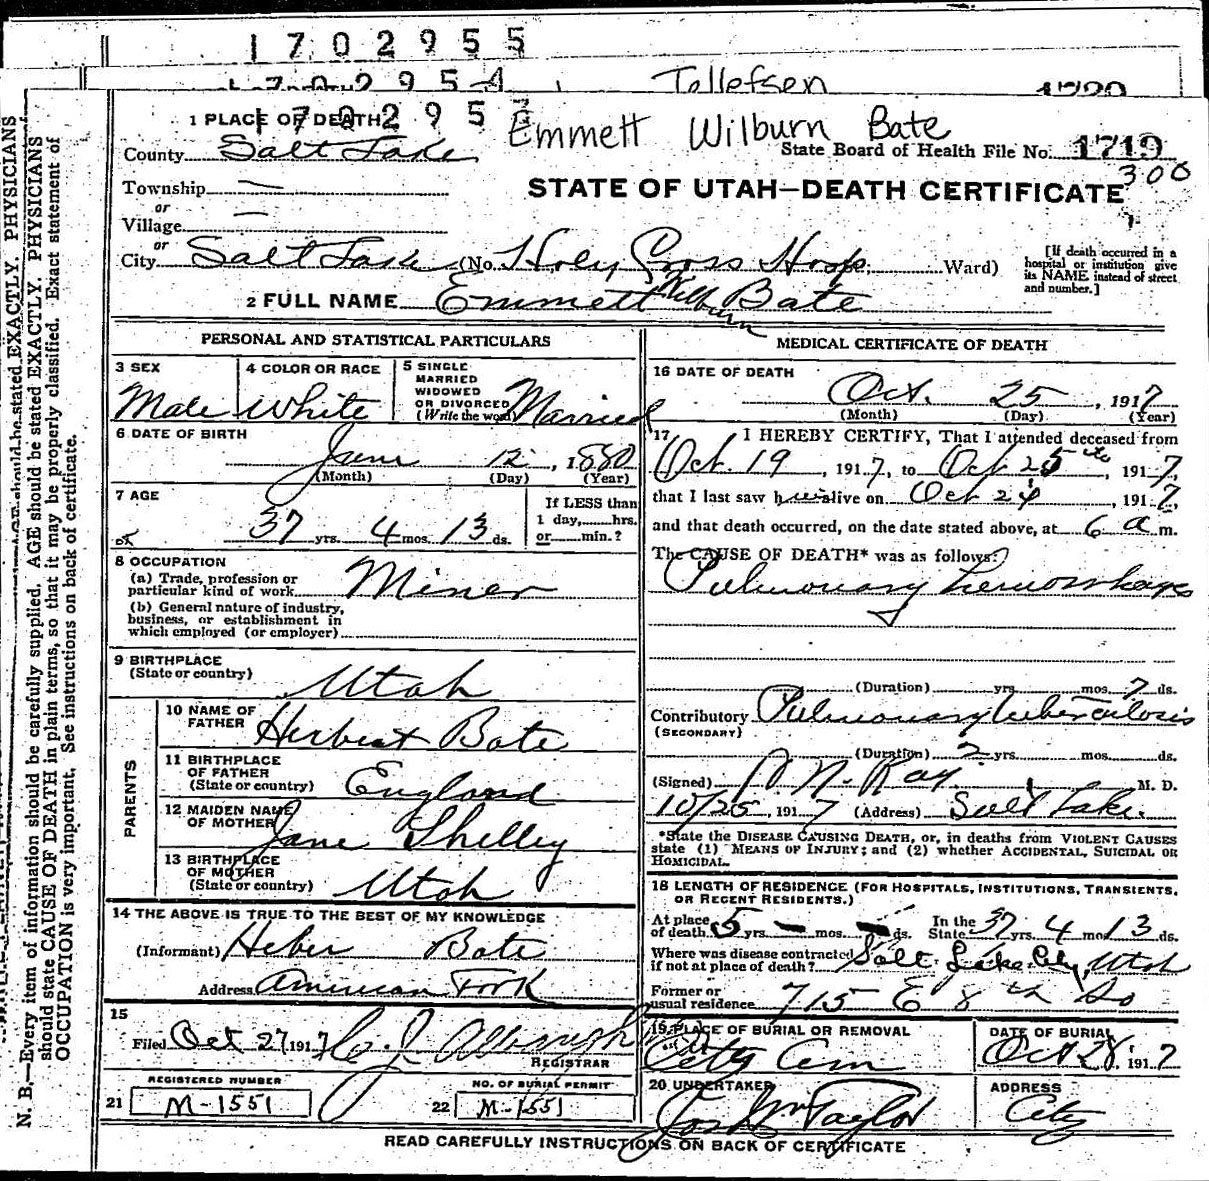 1702955
170295
Tollefsen
1720
1 PLACE OF DEATH
170295
Emmett Wilburn Bate
County Salt Lake
State Board of Health File No. 1719
300
Township —
STATE OF UTAH—DEATH CERTIFICATE
or
Village —
or
City Salt Lake (No. Holy Cross Hosp. Ward)
[If death occurred in a hospital or institution give its NAME instead of street and number.]
2 FULL NAME Emmett Wilburn Bate
PERSONAL AND STATISTICAL PARTICULARS
3 SEX
Male
4 COLOR OR RACE
White
5 SINGLE
MARRIED
WIDOWED
OR DIVORCED
(Write the word) Married
6 DATE OF BIRTH
June 12, 1880
(Month) (Day) (Year)
7 AGE
37 yrs. 4 mos. 13 ds.
If LESS than
1 day,......hrs.
or......min.?
8 OCCUPATION
(a) Trade, profession or
particular kind of work Miner
(b) General nature of industry,
business, or establishment in
which employed (or employer)
9 BIRTHPLACE
(State or country) Utah
PARENTS
10 NAME OF
FATHER Herbert Bate
11 BIRTHPLACE
OF FATHER
(State or country) England
12 MAIDEN NAME
OF MOTHER Jane Shelley
13 BIRTHPLACE
OF MOTHER
(State or country) Utah
14 THE ABOVE IS TRUE TO THE BEST OF MY KNOWLEDGE
(Informant) Heber Bate
Address American Fork
15
Filed Oct 27 1917
REGISTRAR
REGISTERED NUMBER
21 M-1551
NO. OF BURIAL PERMIT
22 M-1551
MEDICAL CERTIFICATE OF DEATH
16 DATE OF DEATH
Oct. 25, 1917
(Month) (Day) (Year)
17 I HEREBY CERTIFY, That I attended deceased from
Oct. 19, 1917, to Oct 25, 1917,
that I last saw him alive on Oct 24, 1917,
and that death occurred, on the date stated above, at 6 a m.
The CAUSE OF DEATH* was as follows:
Pulmonary hemorrhage
(Duration) yrs. mos. 7 ds.
Contributory Pulmonary tuberculosis
(SECONDARY)
(Duration) 2 yrs. mos. ds.
(Signed) Ray. M. D.
10/25, 1917 (Address) Salt Lake.
*State the DISEASE CAUSING DEATH, or, in deaths from VIOLENT CAUSES
state (1) MEANS OF INJURY; and (2) whether ACCIDENTAL, SUICIDAL OR
HOMICIDAL.
18 LENGTH OF RESIDENCE (FOR HOSPITALS, INSTITUTIONS, TRANSIENTS,
OR RECENT RESIDENTS.)
At place
of death 5 yrs. — mos. — ds. In the State 37 yrs. 4 mos 13 ds.
Where was disease contracted
if not at place of death? Salt Lake City, Utah
Former or
usual residence 715 E 8th So
19 PLACE OF BURIAL OR REMOVAL
City Cem
DATE OF BURIAL
Oct 28, 1917
20 UNDERTAKER
Jos Wm Taylor
ADDRESS
City
READ CAREFULLY INSTRUCTIONS ON BACK OF CERTIFICATE
N. B.—Every item of information should be carefully supplied. AGE should be stated EXACTLY. PHYSICIANS
should state CAUSE OF DEATH in plain terms, so that it may be properly classified. Exact statement of
OCCUPATION is very important. See instructions on back of certificate.